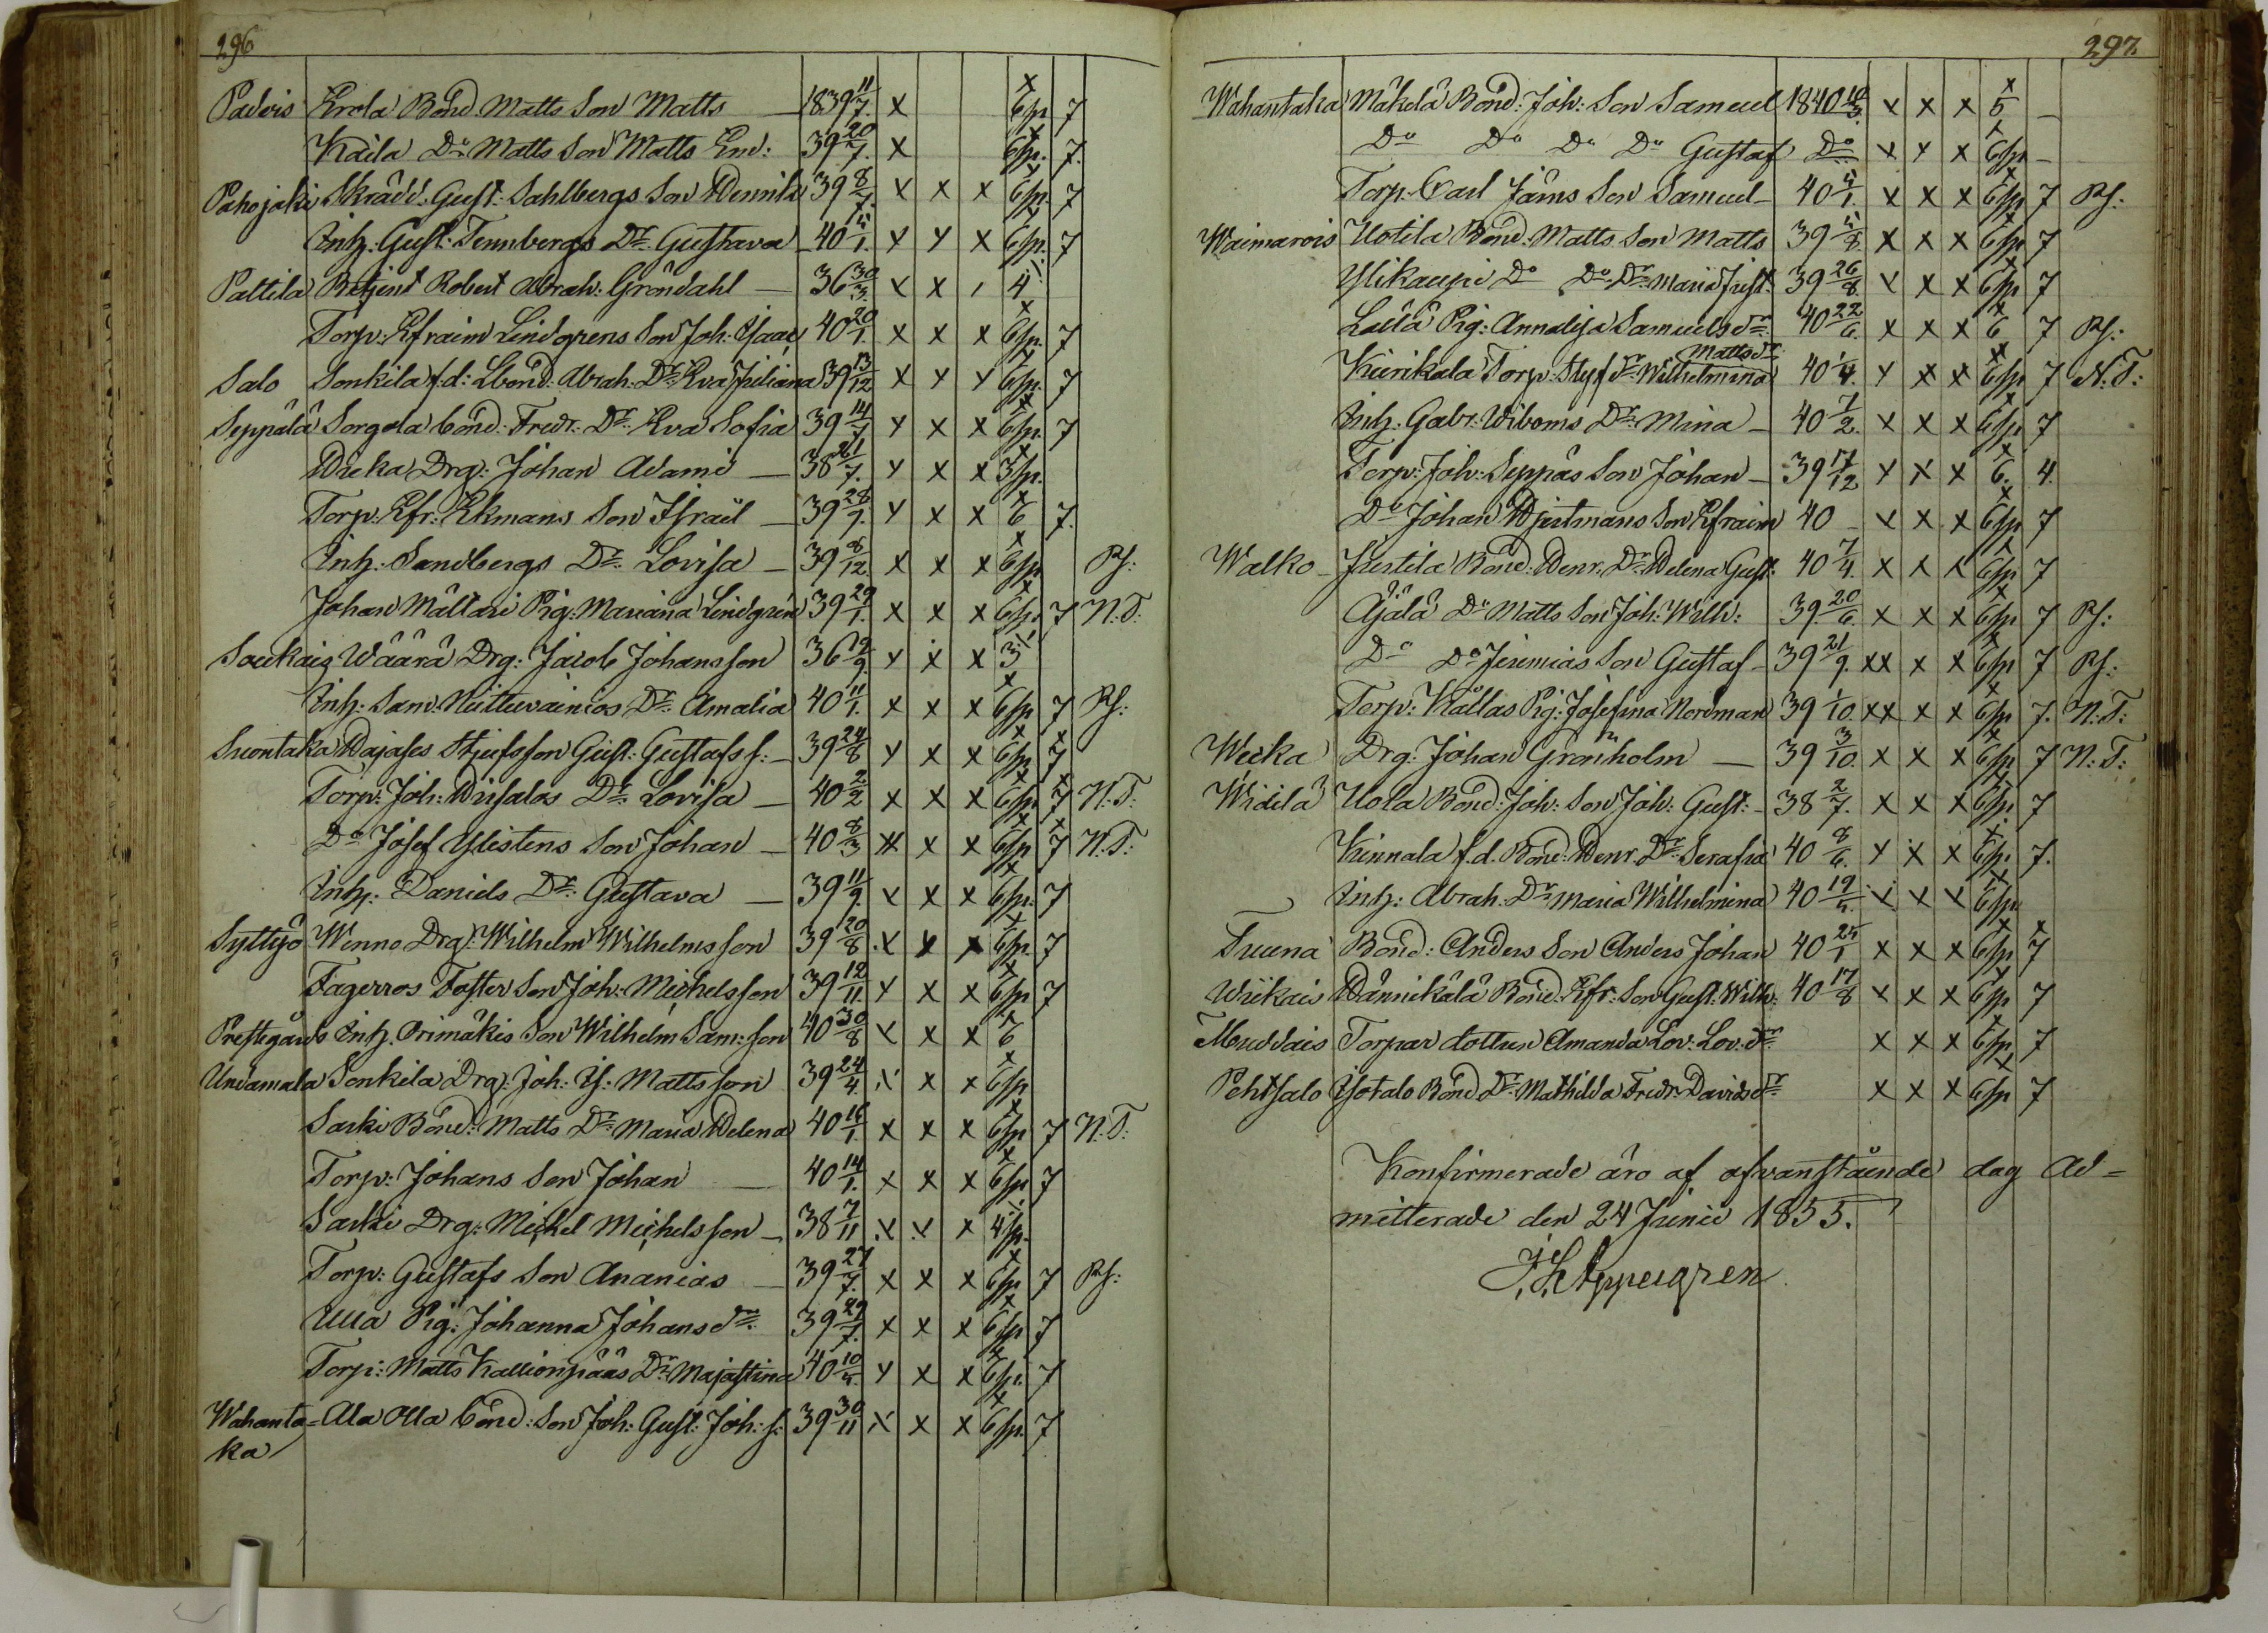 296
Padois Errola Bond. Matts Son Matts — 1839 11/7. x 6/sp 7
Kaila Do Matts Son Matts Em: 39 20/7. x 6/sp. 7.
Pahojoki Skrädd. Gust: Sahlbergs Son Henrik 39 8/7. x x x 6/sp. 7
Inh: Gust: Tennbergs Dr Gustava 40 4/1. x x x 6/sp. 7
Pattila Betjent Robert Abrah: Gröndahl — 36 30/3. x x 4
Torp: Efraim Lindgrens Son Joh: Isaac 40 20/1. x x x 6/sp. 7
Salo Sonkila f.d: Lbond: Abrah: Dr Eva Juliana 39 13/12 x x x 6/sp. 7
Seppälä Sorgola bond: Fredr: Dr: Eva Sofia 39 14/7 x x x 6/sp. 7
Wieka Drg: Johan Adami — 38 21/7. x x x 3/sp.
Torp: Efr: Ekmans Son Israël — 39 28/9. x x x 6 7.
Inh: Sandbergs Dr. Lovisa — 39 8/12. x x x 6/sp Rf:
Johan Mällari Pig: Mariana Lindgren 39 29/1. x x x 6/sp. 7 N.T:
Soukais Wäärä Drg: Jacob Johansson 36 19/9. x x x 3
Inh: Sam: Niittuvainios Dr: Amalia 40 11/1. x x x 6/sp 7 Rf:
Suontaka Hajases Stjufsson Gust: Gustafs s: — 39 24/8 x x x 6/sp 7
Torp: Joh: Hirsalos Dr: Lovisa — 40 2/2 x x x 6/sp. 7 N:T:
Do Josef Ylistens Son Johan — 40 8/3 x x x 6/sp 7 N:T:
Inh: Daniels Dr: Gustava — 39 11/9. x x x 6/sp. 7
Syttyö Wenno Drg: Wilhelm Wilhelmsson 39 20/8 x x x 6/sp. 7
Fagerros Foster Son Joh: Michelsson 39 12/11. x x x 6/sp 7
Prestegårds Inh. Orimäkis Son Wilhelm Sam:son 40 30/8 x x x 6
Undamala Sonkila Drg: Joh: Is: Mattsson 39 24/4. x x x 6/sp
Sarki Bond: Matts Dr: Maria Helena 40 16/1. x x x 6/sp 7 N.T:
Torp: Johans Son Johan — 40 14/1. x x x 6/sp 7
Sarki Drg: Michel Michelsson — 38 7/11 x x x 4/sp.
Torp: Gustafs Son Ananias — 39 27/7. x x x 6/sp 7 Rf:
Ulla Pig: Johanna Johansdr: 39 29/7. x x x 6/sp 7
Torp: Matts Kallionpääs Dr: Majastina 40 10/4. x x x 6/sp. 7
Wahanta= Ala Olla bond: Son Joh: Gust: Joh: s: 39 30/11 x x x 6/sp. 7
ka
297.
Wahantaka Mäkelä Bond: Joh: Son Samuel 1840 10/3. x x x 5 —
Do Do Do Do Gustaf Do x x x 6/sp —
Torp. Carl Järns Son Samuel — 40 4/1. x x x 6/sp 7 Rf:
Waimarois Uotila Bond: Matts Son Matts 39 4/8. x x x 6/sp 7
Ylikaupi Do Do Dr: Maria Just: 39 26/8. x x x 6/sp 7
Laila Pig: Annalisa Samuelsdr: 40 22/6. x x x 6 7 Rf:
Mattsdr:
Kurikala Torp: Styf dr: Wilhelmina 40 1/4. x x x 6/sp 7 N:T:
Inh: Gabr: Wiboms Dr: Mina — 40 7/2. x x x 6/sp 7
Torp: Joh: Seppäs Son Johan — 39 17/12 x x x 6. 4.
Do Johan Hjertmans Son Efraim 40 — x x x 6/sp 7
Walko — Juttila Bond: Henr. Dr: Helena Gust: 40 7/4. x x x 6/sp 7
Äjälä Do Matts Son Joh: Wilh: 39 20/6. x x x 6/sp 7 Rf:
Do Do Jeremias Son Gustaf — 39 21/9. xx x x 6/sp 7 Rf:
Torp: Källas Pig: Josefina Nordman 39 1/10. xx x x 6/sp 7. N:T:
Wecka Drg: Johan Grönholm — 39 3/10. x x x 6/sp 7 N:T:
Widilä Uola Bond: Joh: Son Joh: Gust: — 38 2/7. x x x 6/sp. 7
Kinnala f.d. Bond: Henr. Dr: Serafia 40 8/6. x x x 6/sp. 7.
Inh: Abrah. Dr: Maria Wilhelmina 40 19/4. x x x 6/sp
Tuuna Bond: Anders Son Anders Johan 40 24/1 x x x 6/sp 7
Wiikais Hännikälä Bond: Efr: Son Gust: Wilh: 40 17/8 x x x 6/sp 7
Muddais Torpar dottren Amanda Lov: Lov: dr: x x x 6/sp 7
Pehtsalo Isotalo Bond Dr: Mathilda Fredr: Davidsdr: x x x 6/sp 7
Konfirmerade äro af ofvanstående dag Ad=
mitterade den 24 Junii 1855.